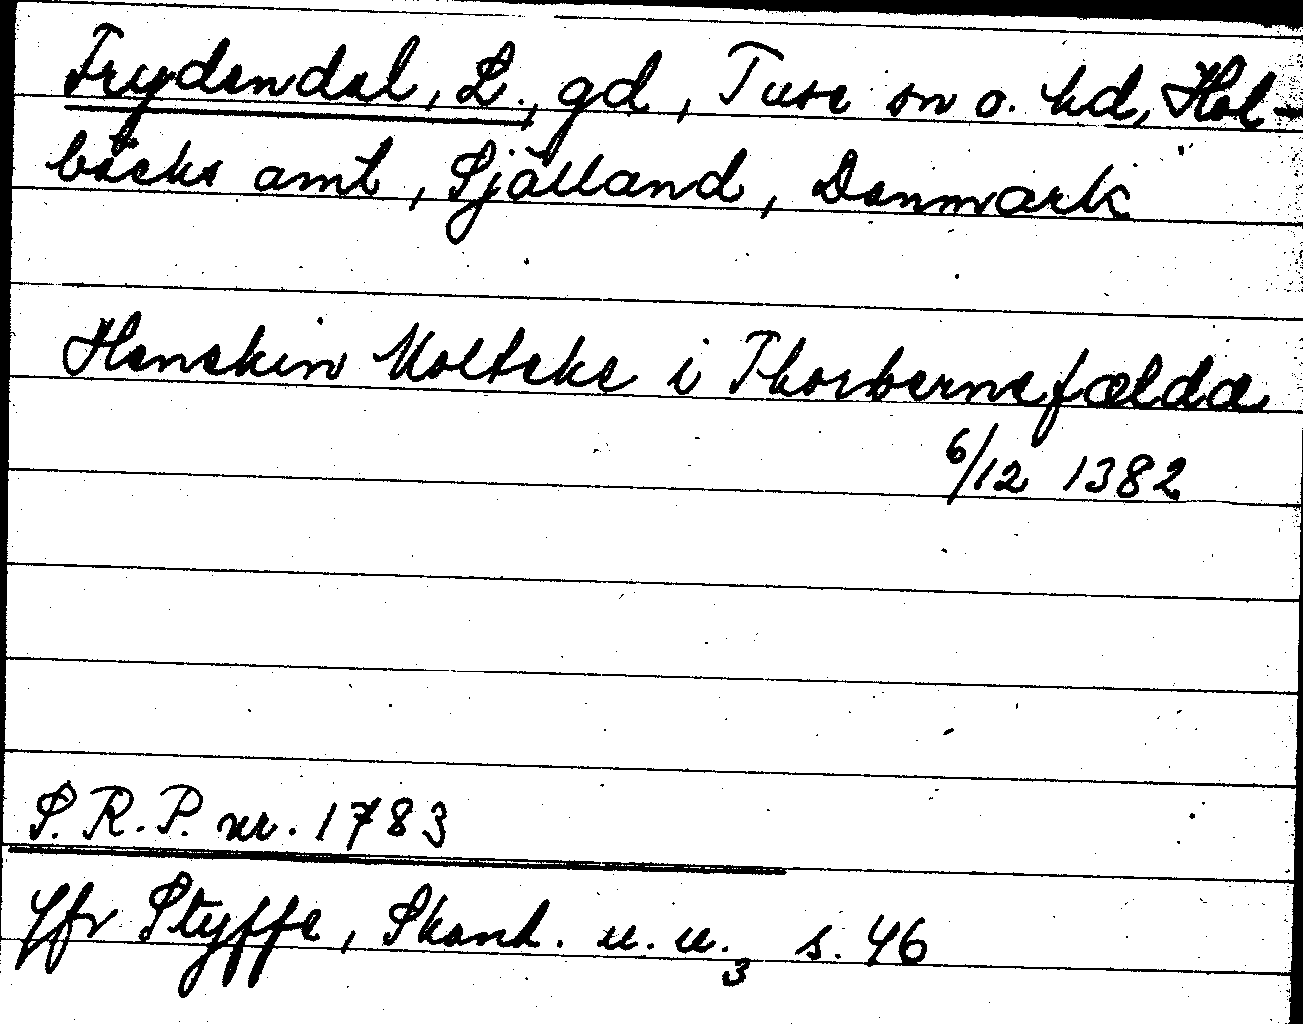 Frydendal, L., gd, Tuse sn o. hd, Hol-
bäcks amt, Själland, Danmark
Henekin Molteke i Thorbernefælde
6/12 1382
S.R.P. nr. 1783
Jfr Styffe, Skand. u. u.3 s. 46